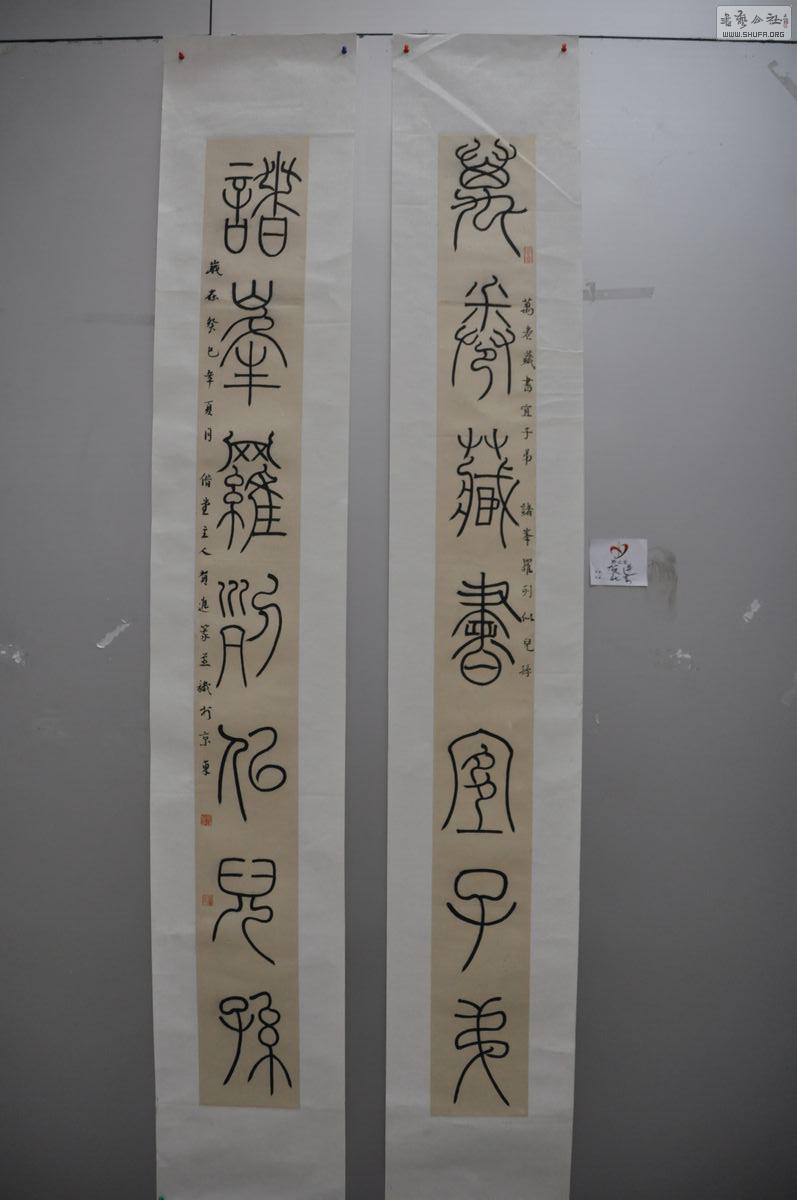 萬卷藏書宜子弟
萬卷藏書宜子弟 諸峯羅列似兒孫
諸峯羅列似兒孫
歲在癸巳年夏月 偕堂主人賀進篆並識於京東
書藝公社
WWW.SHUFA.ORG